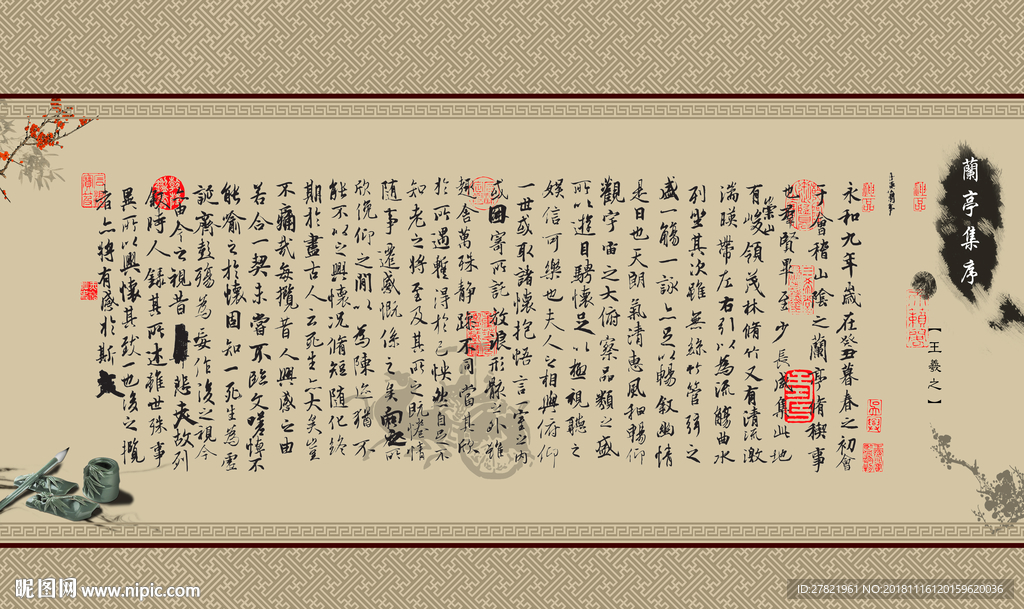 蘭亭集序
【王羲之】
永和九年歲在癸丑暮春之初會
于會稽山陰之蘭亭脩禊事
也群賢畢至少長咸集此地
有崇山峻領茂林脩竹又有清流激
湍暎帶左右引以為流觴曲水
列坐其次雖無絲竹管弦之
盛一觴一詠亦足以暢敘幽情
是日也天朗氣清惠風和暢仰
觀宇宙之大俯察品類之盛
所以遊目騁懷足以極視聽之
娛信可樂也夫人之相與俯仰
一世或取諸懷抱悟言一室之內
或因寄所託放浪形骸之外雖
趣舍萬殊靜躁不同當其欣
於所遇蹔得於己怏然自足不
知老之將至及其所之既惓情
隨事遷感慨係之矣向之所
欣俛仰之閒以為陳迹猶不
能不以之興懷況脩短隨化終
期於盡古人云死生亦大矣豈
不痛哉每攬昔人興感之由
若合一契未嘗不臨文嗟悼不
能喻之於懷固知一死生為虛
誕齊彭殤為妄作後之視今
亦由今之視昔悲夫故列
敘時人錄其所述雖世殊事
異所以興懷其致一也後之攬
者亦將有感於斯文
昵图网 www.nipic.com
ID:27821961 NO:20181116120159620036